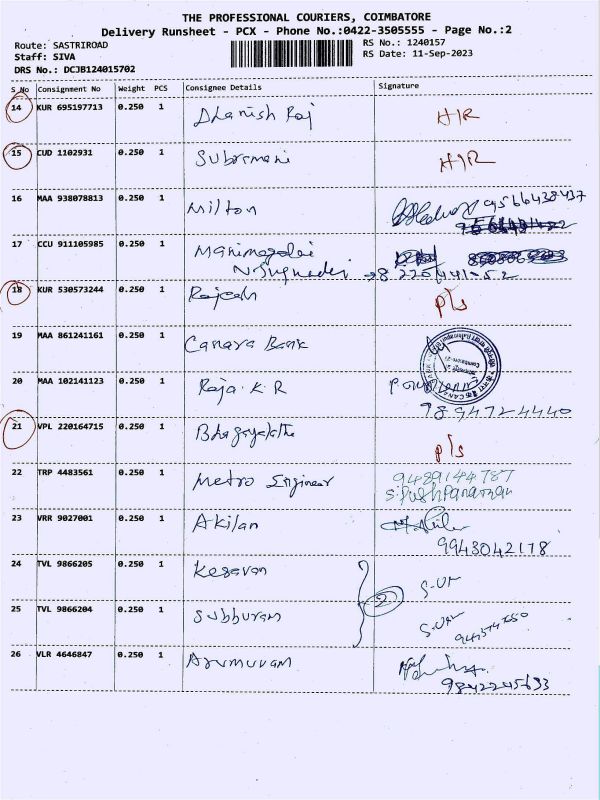 THE PROFESSIONAL COURIERS, COIMBATORE
Delivery Runsheet - PCX - Phone No.:0422-3505555 - Page No.:2
Route: SASTRIROAD
RS No.: 1240157
Staff: SIVA
RS Date: 11-Sep-2023
DRS No.: DCJB124015702
S No Consignment No Weight PCS Consignee Details Signature
14 KUR 695197713 0.250 1 Dhanish Raj H/R
15 CUD 1102931 0.250 1 Subramani H/R
16 MAA 938078813 0.250 1 Milton 9566438437
17 CCU 911105985 0.250 1 Manimegalai
18 KUR 530573244 0.250 1 Rajesh P/s
19 MAA 861241161 0.250 1 Canara Bank
20 MAA 102141123 0.250 1 Raja. K. R
7894724440
21 VPL 220164715 0.250 1 P/s
22 TRP 4483561 0.250 1 Metro Engineer 9489144787
23 VRR 9027001 0.250 1 Akilan
9943042178
24 TVL 9866205 0.250 1 Kesavan
2
25 TVL 9866204 0.250 1 Subburam
26 VLR 4646847 0.250 1 Arumuvam
9842245633